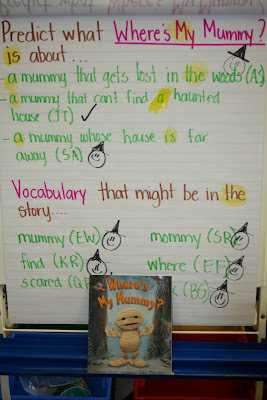 Predict what Where's My Mummy?
is about...
- a mummy that gets lost in the woods (AS)
- a mummy that can't find a haunted
house (JT) ✓
- a mummy whose house is far
away (SR)
Vocabulary that might be in the
story....
mummy (EW) mommy (SR)
find (KR) where (EF)
scared (BS)
Where's
My Mummy?